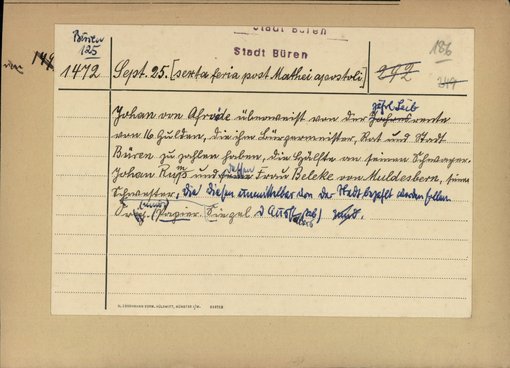 Stadt Büren
Büren
125
Stadt Büren
186
1472
Sept. 25. [sexta feria post Mathei apostoli]
292
247
Johan von Afröde überweist von der jährl. Leib
rente
von 16 Gulden, die ihm Bürgermeister, Rat und Stadt
Büren zu zahlen haben, die Hälfte an seinen Schwager
Johan Ruß und dessen Frau Beleke von Muldesborn, seine
Schwester, die diesen unmittelbar von der Stadt bezahlt werden sollen
Papier. Siegel